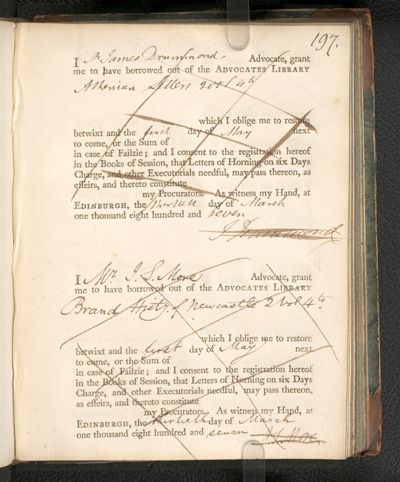 197.
I Mr James Drummond Advocate, grant
me to have borrowed out of the ADVOCATES LIBRARY
Athenian Letters 2 vol 4to
which I oblige me to restore
betwixt and the first day of May next
to come, or the Sum of
in case of Failzie; and I consent to the registration hereof
in the Books of Session, that Letters of Horning on six Days
Charge, and other Executorials needful, may pass thereon, as
effeirs, and thereto constitute
my Procurators. As witness my Hand, at
EDINBURGH, the day of March
one thousand eight hundred and seven
J Drummond
I Mr. J. S. More Advocate, grant
me to have borrowed out of the ADVOCATES LIBRARY
Brand Histy of Newcastle 2 vol 4to
which I oblige me to restore
betwixt and the first day of May next
to come, or the Sum of
in case of Failzie; and I consent to the registration hereof
in the Books of Session, that Letters of Horning on six Days
Charge, and other Executorials needful, may pass thereon,
as effeirs, and thereto constitute
my Procurators. As witness my Hand, at
EDINBURGH, the thirtieth day of March
one thousand eight hundred and seven
More